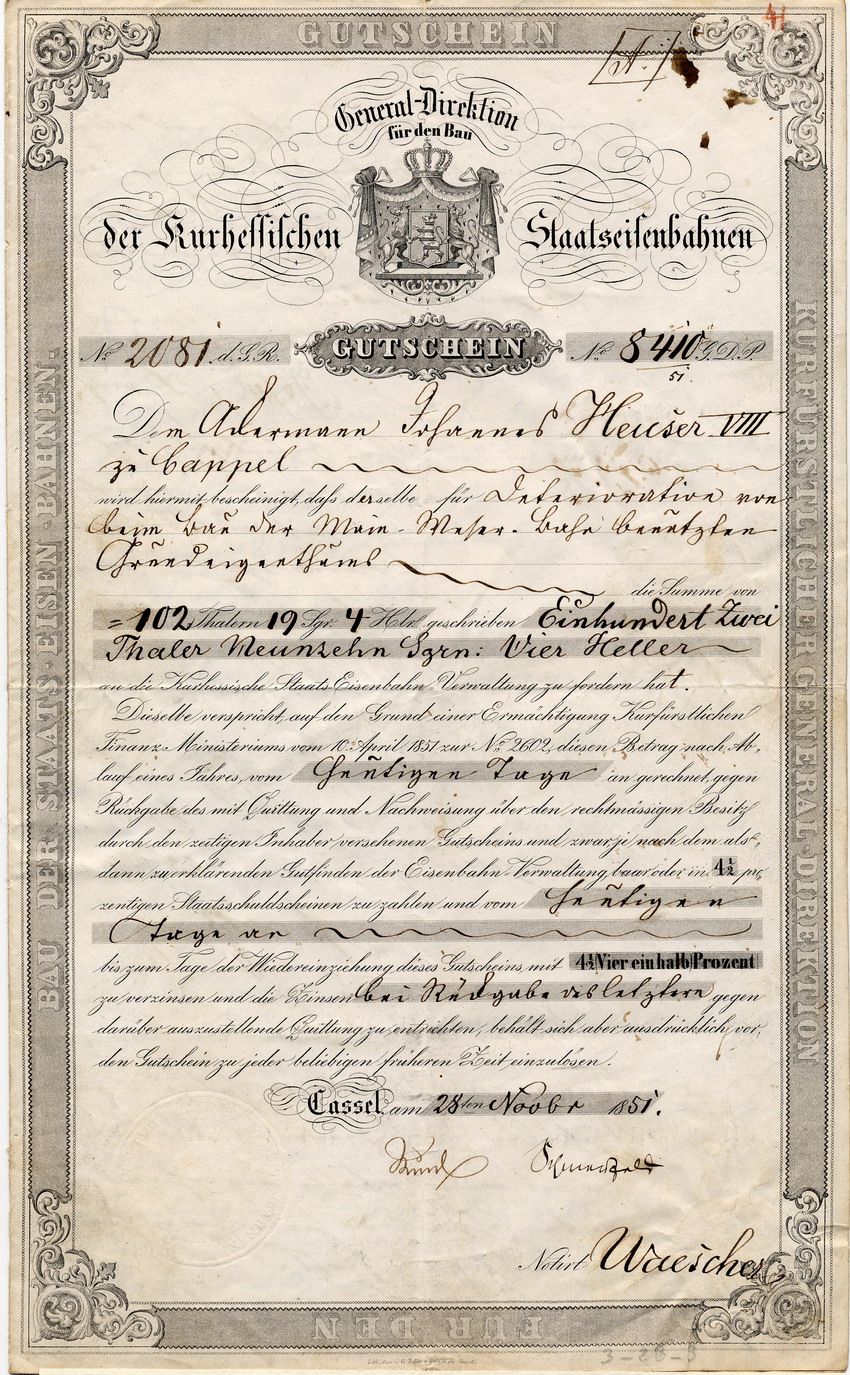 GUTSCHEIN
General-Direktion
für den Bau
der Kurhessischen Staatseisenbahnen
No 2081 d.G.R. GUTSCHEIN No 8410 G.D.P.
51.
Dem Ackermann Johannes Heuser VIII
zu Cappel
wird hiermit bescheinigt, dass derselbe für Deterioration von
beim Bau der Main-Weser-Bahn benutzten
Grundeigenthums
die Summe von
= 102 Thalern 19 Sgr. 4 Hlr. geschrieben Einhundert Zwei
Thaler Neunzehn Sgrn: Vier Heller
an die Kurhessische Staats-Eisenbahn-Verwaltung zu fordern hat.
Dieselbe verspricht, auf den Grund einer Ermächtigung Kurfürstlichen
Finanz-Ministeriums vom 10. April 1851 zur No 2602, diesen Betrag nach Ab-
lauf eines Jahres, vom heutigen Tage an gerechnet, gegen
Rückgabe des mit Quittung und Nachweisung über den rechtmässigen Besitz
durch den zeitigen Inhaber versehenen Gutscheins und zwar je nach dem als-
dann zu erklärenden Gutfinden der Eisenbahn-Verwaltung, baar oder in 4½ pro-
zentigen Staatsschuldscheinen zu zahlen und vom heutigen
Tage an
bis zum Tage der Wiedereinziehung dieses Gutscheins, mit 4½ Vier einhalb Prozent
zu verzinsen und die Zinsen bei Rückgabe des letztern gegen
darüber auszustellende Quittung zu entrichten, behält sich aber ausdrücklich vor,
den Gutschein zu jeder beliebigen früheren Zeit einzulösen.
Cassel, am 28ten Novbr 1851.
Notirt Waescher
BAU DER STAATS-EISEN-BAHNEN.
KURFÜRSTLICHER GENERAL-DIREKTION
FÜR DEN